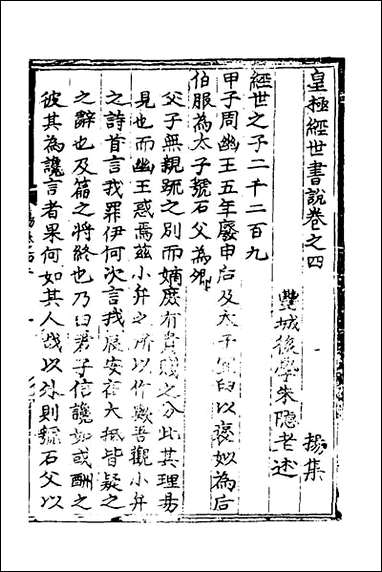 皇極經世書說卷之四
楊集
豐城後學朱隱老述
經世之子二千二百九
甲子周幽王五年廢申后及太子宜臼以褒姒為后
伯服為太子虢石父為卿
父子無親疏之別而嫡庶有貴賤之分此其理易
見也而幽王惑焉茲小弁之所以作歟吾觀小弁
之詩首言我罪伊何次言我辰安在大抵皆疑之
之辭也及篇之將終也乃曰君子信讒如或酬之
彼其為讒言者果何如其人哉以外則虢石父以